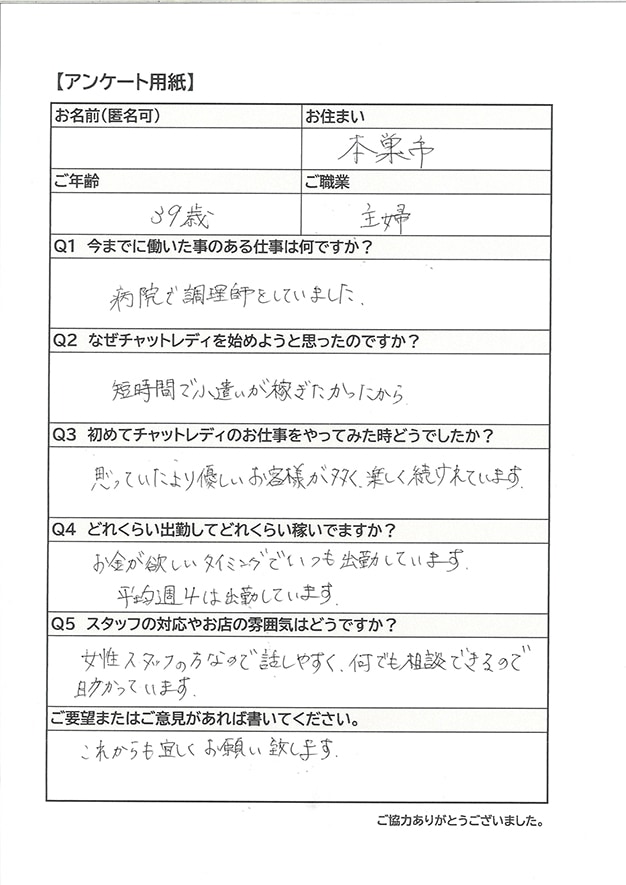 【アンケート用紙】
お名前(匿名可) お住まい
本巣市
ご年齢 ご職業
39歳 主婦
Q1 今までに働いた事のある仕事は何ですか？
病院で調理師をしていました.
Q2 なぜチャットレディを始めようと思ったのですか？
短時間で小遣いが稼ぎたかったから
Q3 初めてチャットレディのお仕事をやってみた時どうでしたか？
思っていたより優しいお客様が多く、楽しく続けれています.
Q4 どれくらい出勤してどれくらい稼いでますか？
お金が欲しいタイミングでいつも出勤しています.
平均週4は出勤しています.
Q5 スタッフの対応やお店の雰囲気はどうですか？
女性スタッフの方なので話しやすく、何でも相談できるので
助かっています.
ご要望またはご意見があれば書いてください。
これからも宜しくお願い致します.
ご協力ありがとうございました。